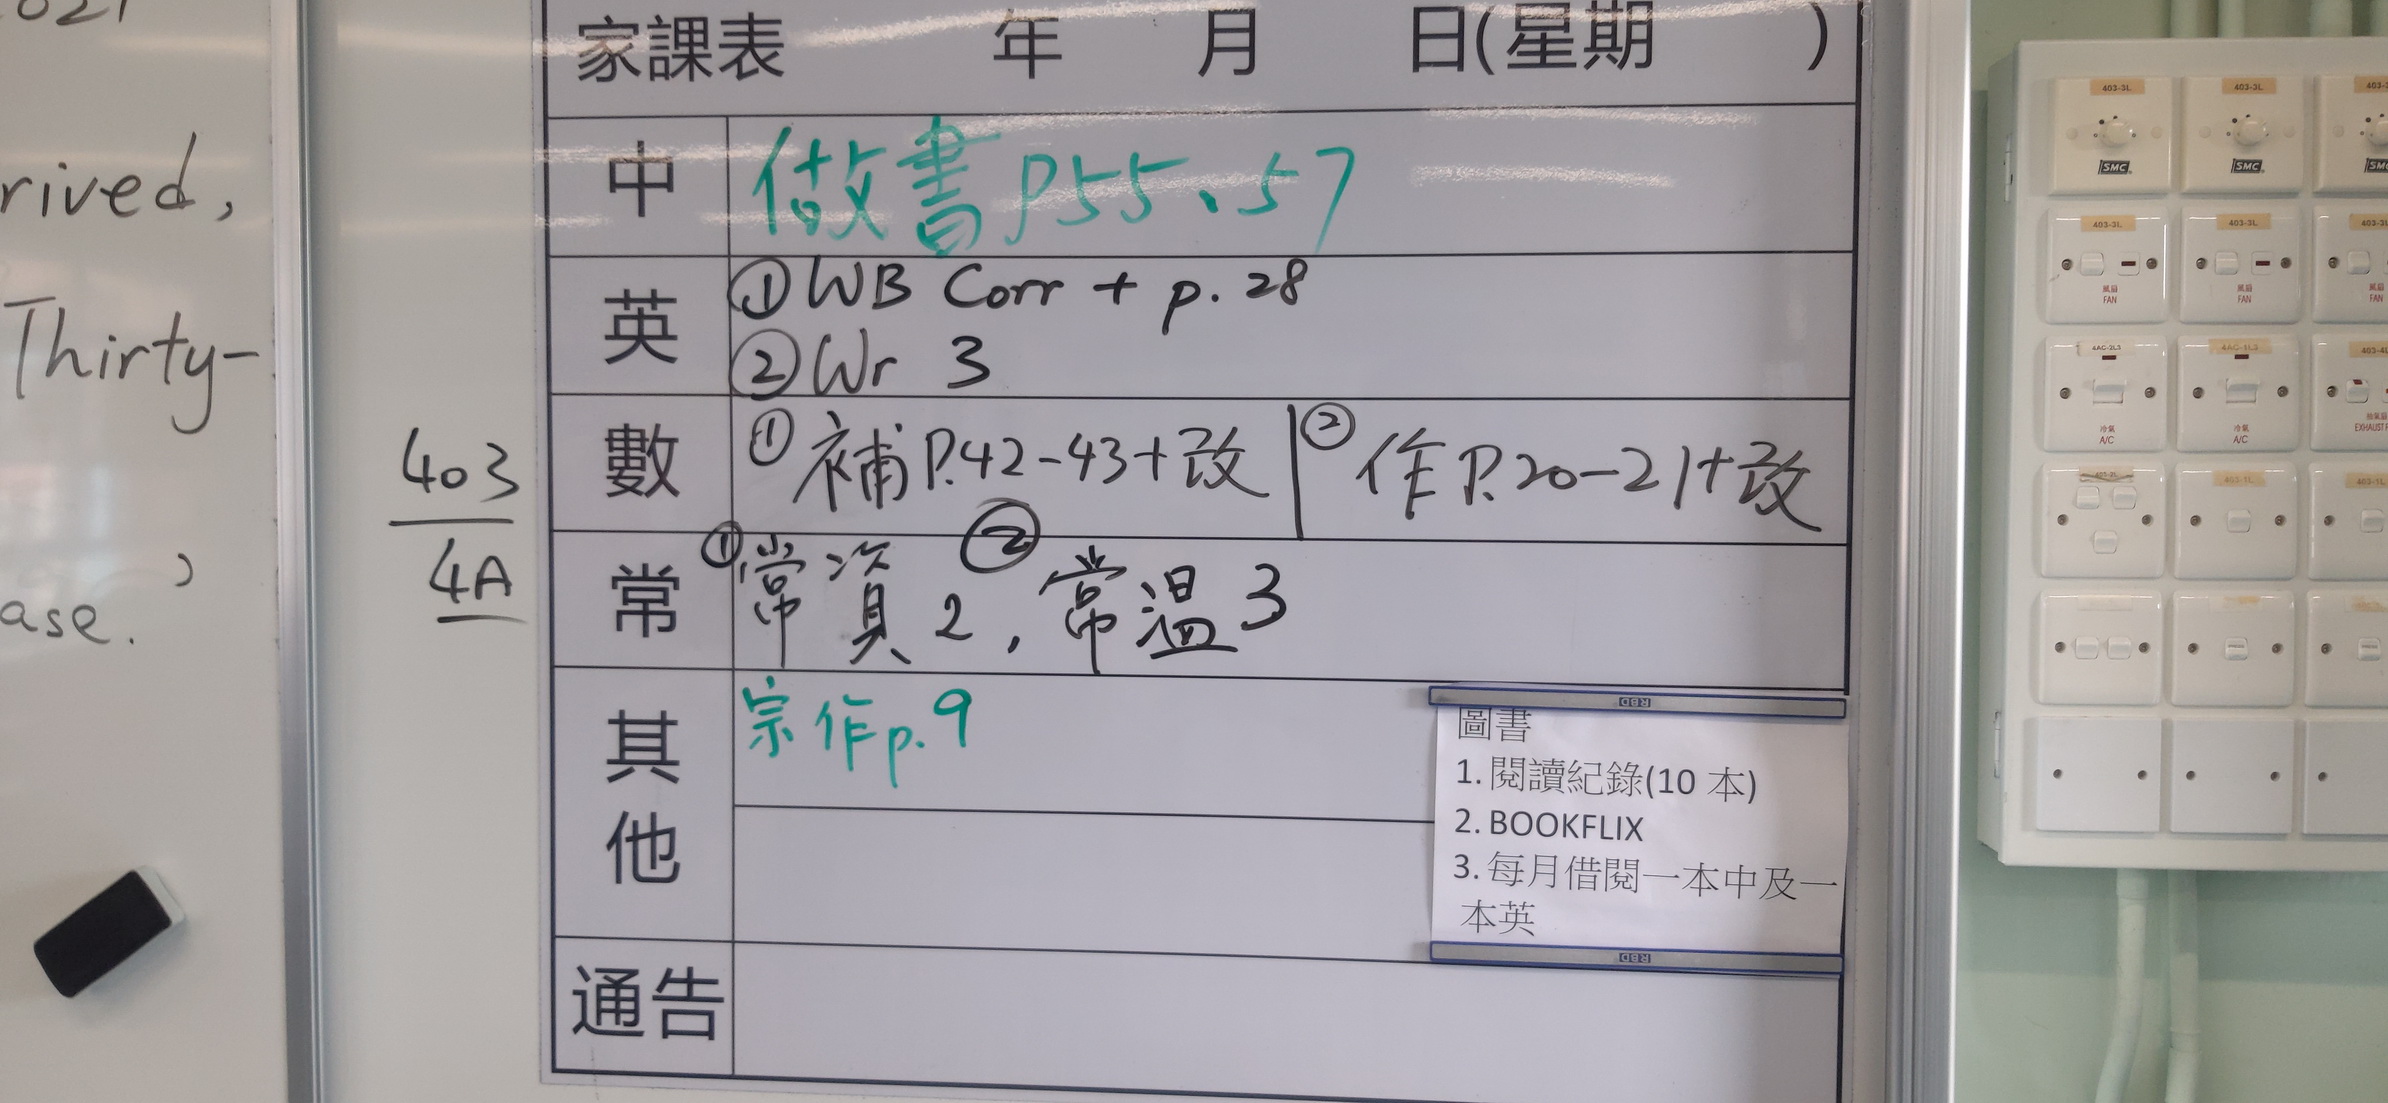 rived,
Thirty-
ase.
403
4A
家課表 年 月 日(星期 )
中 做書P55、57
英 ①WB Corr + p. 28
②Wr 3
數 ①補P.42-43+改 ②作P.20-21+改
常 ①常資2, ②常温3
其他 宗作p.9
圖書
1. 閱讀紀錄(10 本)
2. BOOKFLIX
3. 每月借閱一本中及一
本英
通告
RBD
RBD
403-3L 403-3L
SMC SMC SMC
403-3L 403-3L
風扇 風扇
FAN FAN FAN
4AC-2L3 4AC-1L3
冷氣 冷氣
A/C A/C